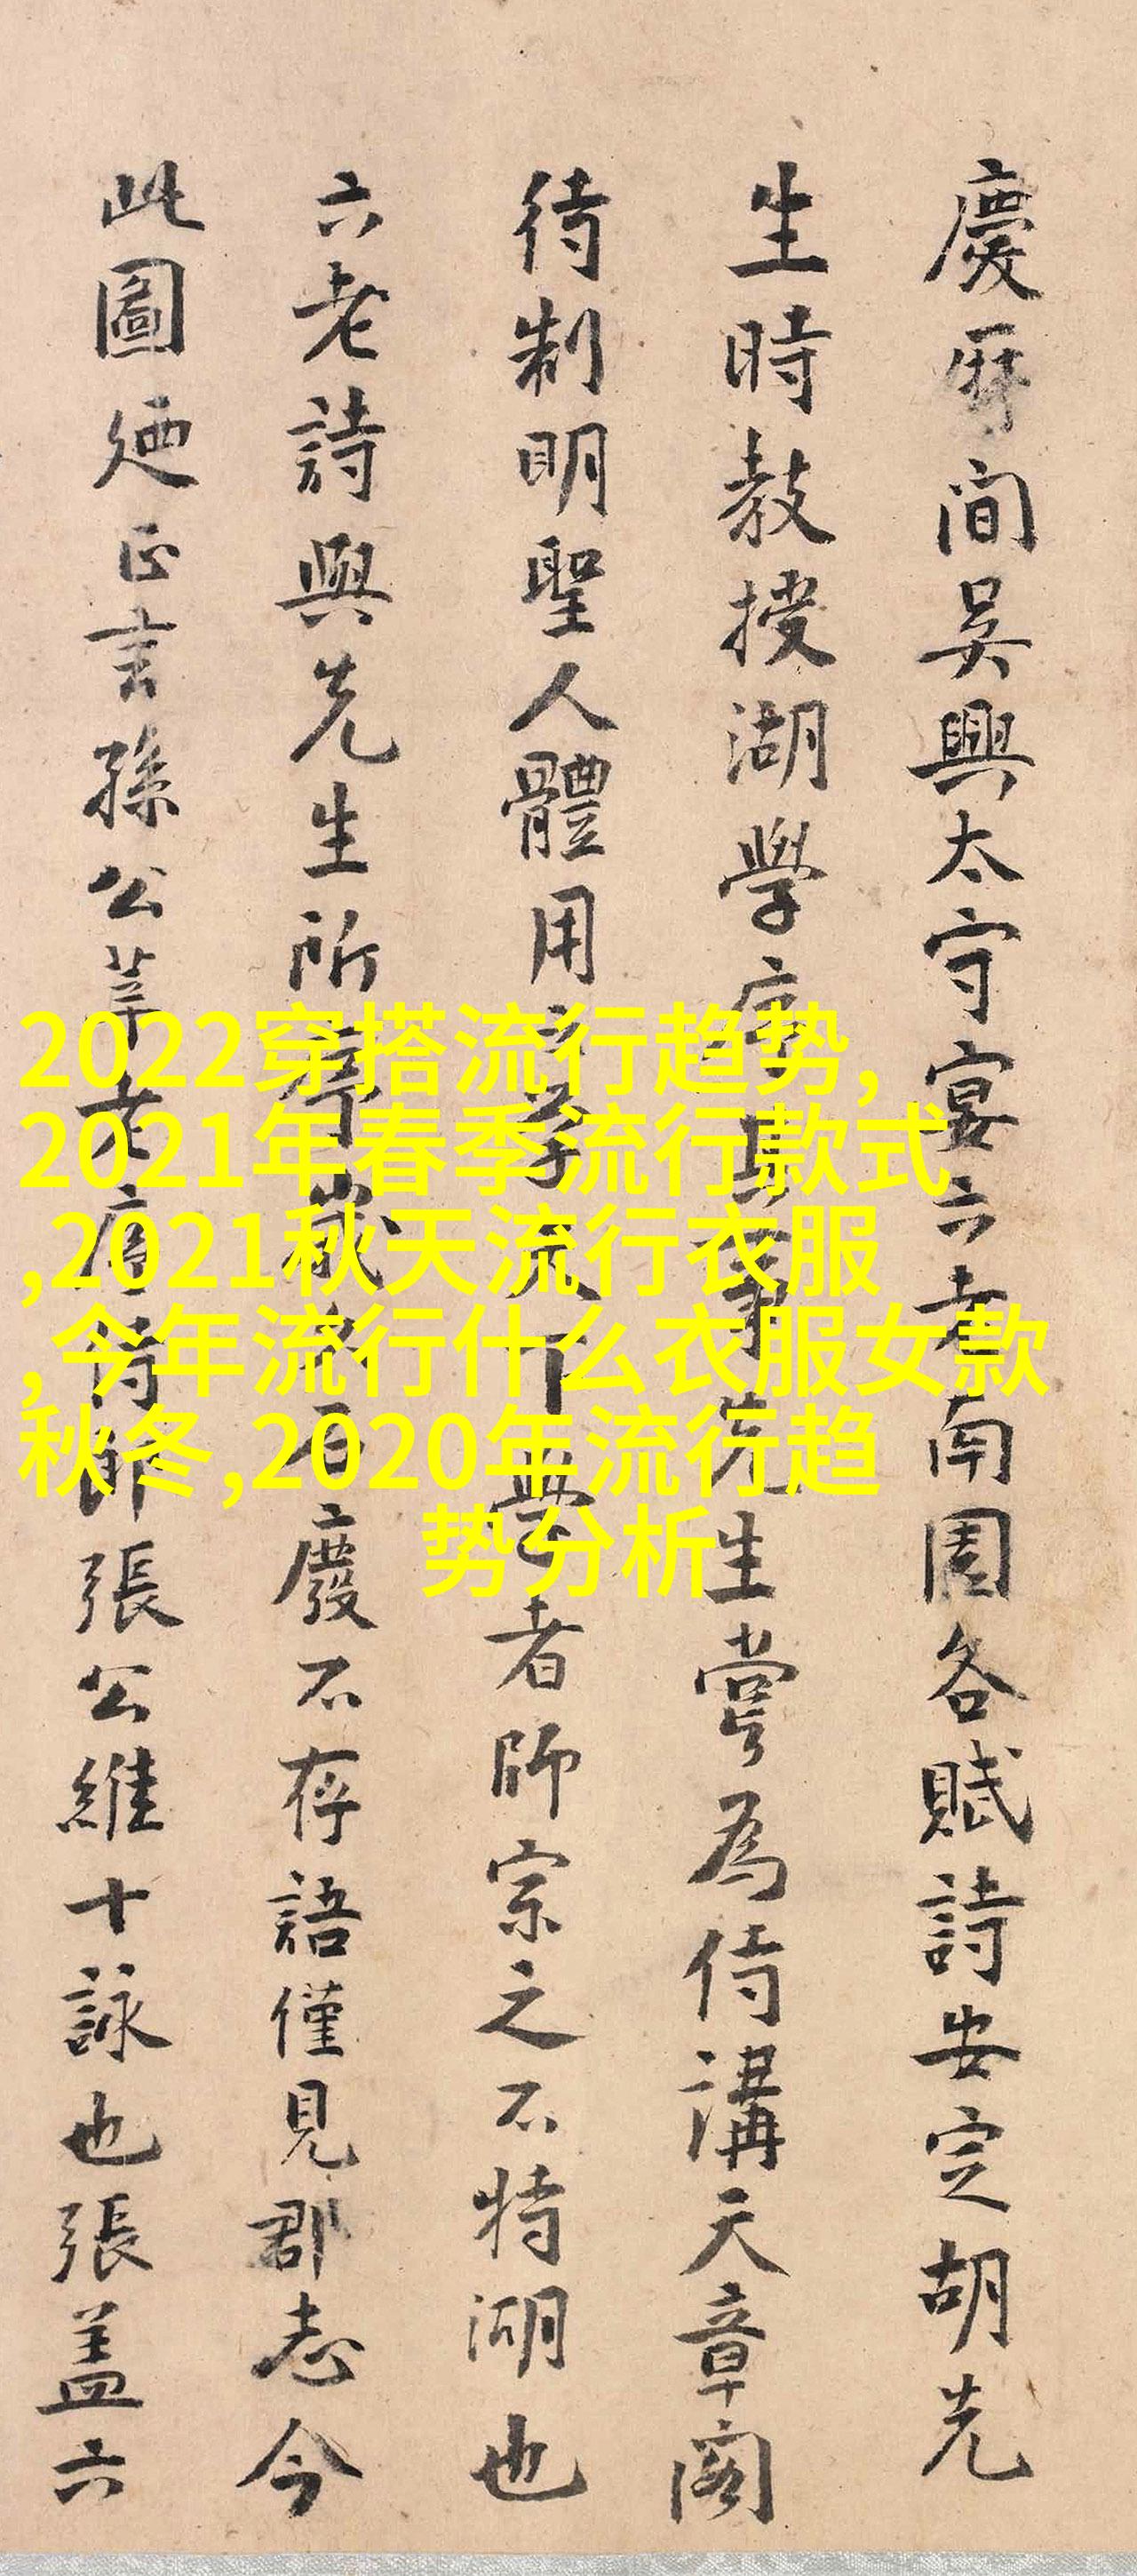 慶曆間吳興太守宴六老南園各賦詩安定胡先
生時教授湖學序其事先生嘗為侍講天章閣
待制明聖人體用之學天下學者師宗之不特湖也
六老詩與先生所序歲久石廢不存語僅見郡志今
此圖廼正言孫公莘老痛侍郎張公維十詠也張蓋六
2022穿搭流行趋势,
2021年春季流行款式
,2021秋天流行衣服
,今年流行什么衣服女款
秋冬,2020年流行趋
势分析